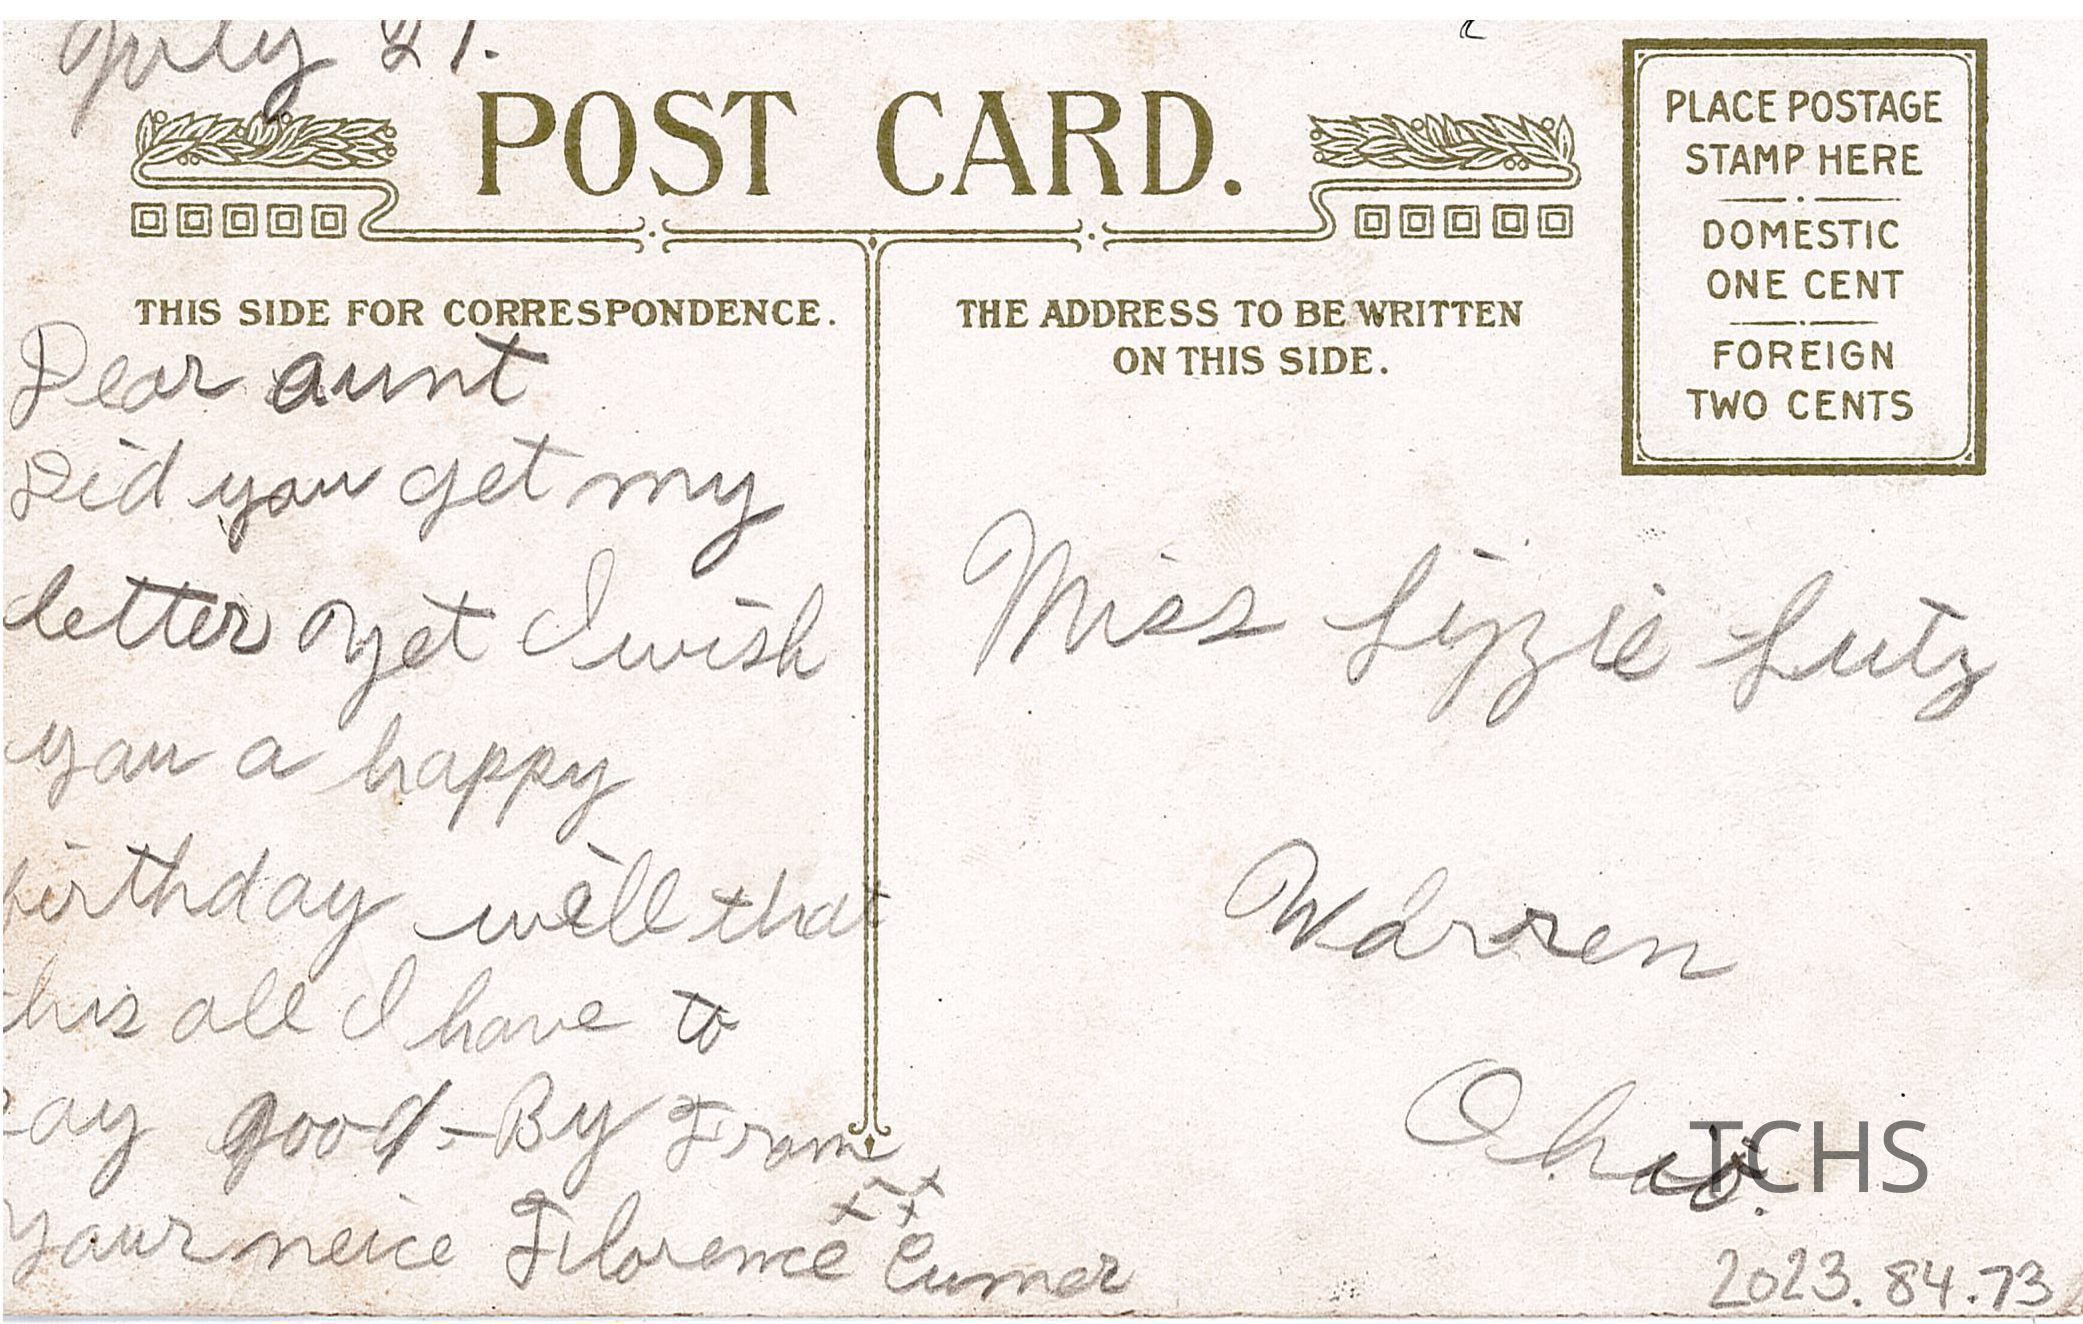 July 21.
POST CARD.
PLACE POSTAGE
STAMP HERE
DOMESTIC
ONE CENT
FOREIGN
TWO CENTS
THIS SIDE FOR CORRESPONDENCE.
THE ADDRESS TO BE WRITTEN
ON THIS SIDE.
Dear aunt
Did you get my
letter yet I wish
you a happy
birthday well that
his all I have to
say good-By From
your neice Florence Cumer
x x x x
Miss Lizzie Lutz
Warren
Ohio.
TCHS
2023.84.73